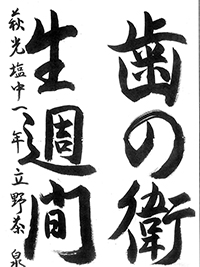 歯の衛
生週間
萩光塩中一年 立野茶泉